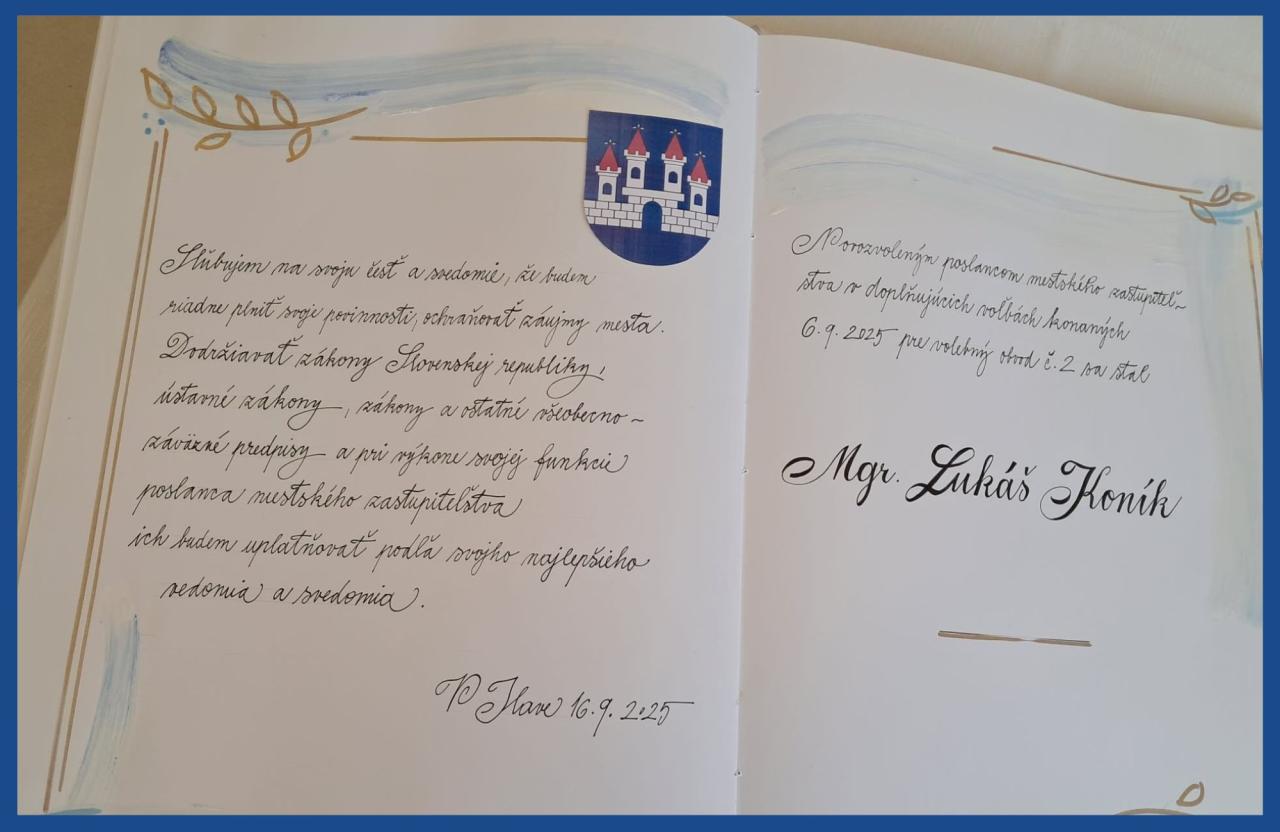 Sľubujem na svoju česť a svedomie, že budem
riadne plniť svoje povinnosti, ochraňovať záujmy mesta.
Dodržiavať zákony Slovenskej republiky,
ústavné zákony, zákony a ostatné všeobecno-
záväzné predpisy a pri výkone svojej funkcie
poslanca mestského zastupiteľstva
ich budem uplatňovať podľa svojho najlepšieho
vedomia a svedomia.
V Ilave 16.9.2025
Novozvoleným poslancom mestského zastupiteľ-
stva v doplňujúcich voľbách konaných
6.9.2025 pre volebný obvod č.2 sa stal
Mgr. Lukáš Koník